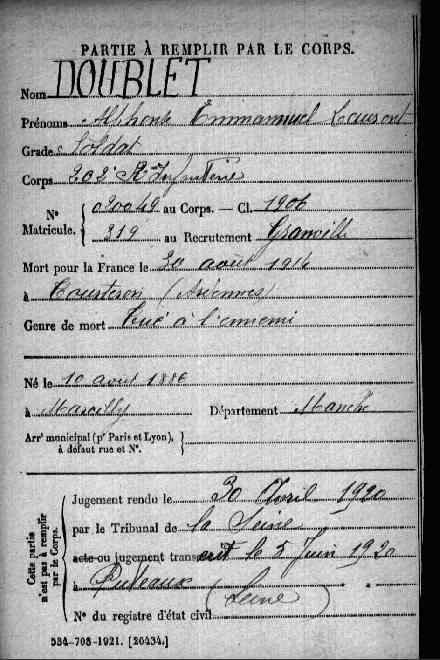 PARTIE À REMPLIR PAR LE CORPS.
Nom DOUBLET
Prénoms Alphonse Emmanuel Laurent
Grade Soldat
Corps 202e Rt Infanterie
Nº Matricule. { 020049 au Corps. — Cl. 1906
319 au Recrutement Granville
Mort pour la France le 30 août 1914
à (Ardennes)
Genre de mort Tué à l'ennemi
Né le 10 août 1886
à Marcilly Département Manche
Arrt municipal (pr Paris et Lyon), à défaut rue et Nº. }
Cette partie n'est pas à remplir par le Corps.
Jugement rendu le 30 Avril 1920
par le Tribunal de la Seine
acte ou jugement transcrit le 5 Juin 1920
à Puteaux (Seine)
Nº du registre d'état civil
534-708-1921. [26434.]